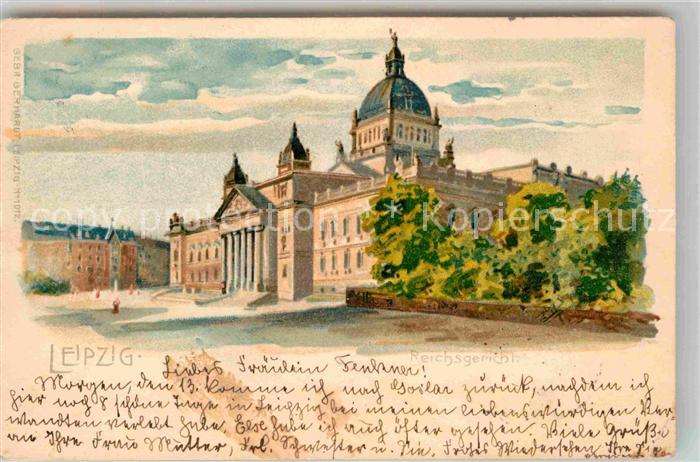 GEBR. GERHARDT, LEIPZIG
copyright Kartenplanet Schutz
LEIPZIG.
Reichsgericht.
Liebes Fräulein
Morgen, den 13. komme ich nach Goslar zurück, nachdem ich
hier noch 8 schöne Tage in Leipzig bei meinen liebenswürdigen Ver-
wandten verlebt habe. Else habe ich auch öfter gesehen. Viele Grüße
an Ihre Frau Mutter, Frl. Schwester u. Sie. Frohes Wiedersehen Ihre